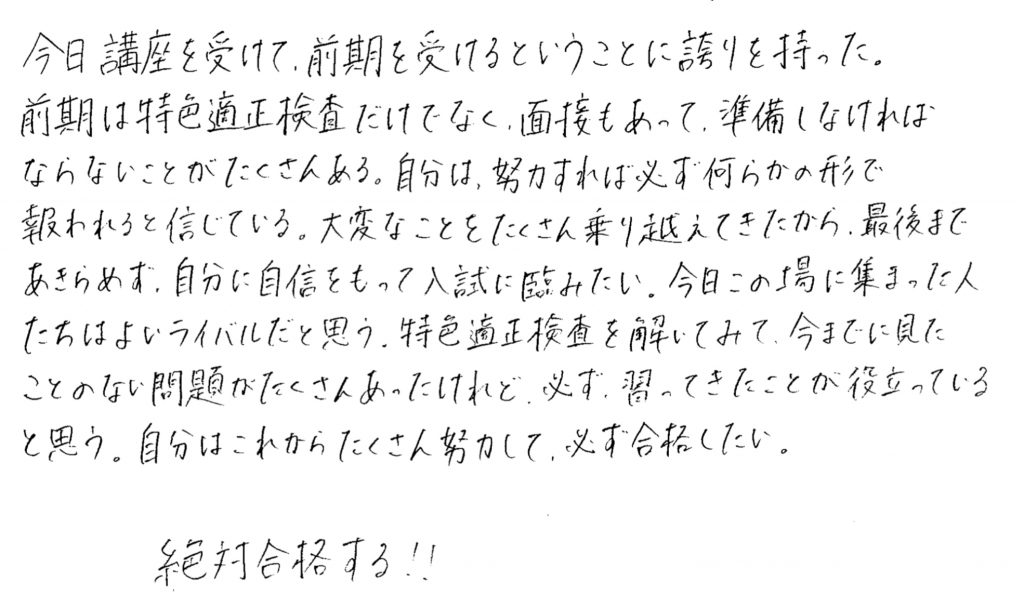 今日講座を受けて、前期を受けるということに誇りを持った。
前期は特色適正検査だけでなく、面接もあって、準備しなければ
ならないことがたくさんある。自分は、努力すれば必ず何らかの形で
報われると信じている。大変なことをたくさん乗り越えてきたから、最後まで
あきらめず、自分に自信をもって入試に臨みたい。今日この場に集まった人
たちはよいライバルだと思う。特色適正検査を解いてみて、今までに見た
ことのない問題がたくさんあったけれど、必ず、習ってきたことが役立っている
と思う。自分はこれからたくさん努力して、必ず合格したい。
絶対合格する!!